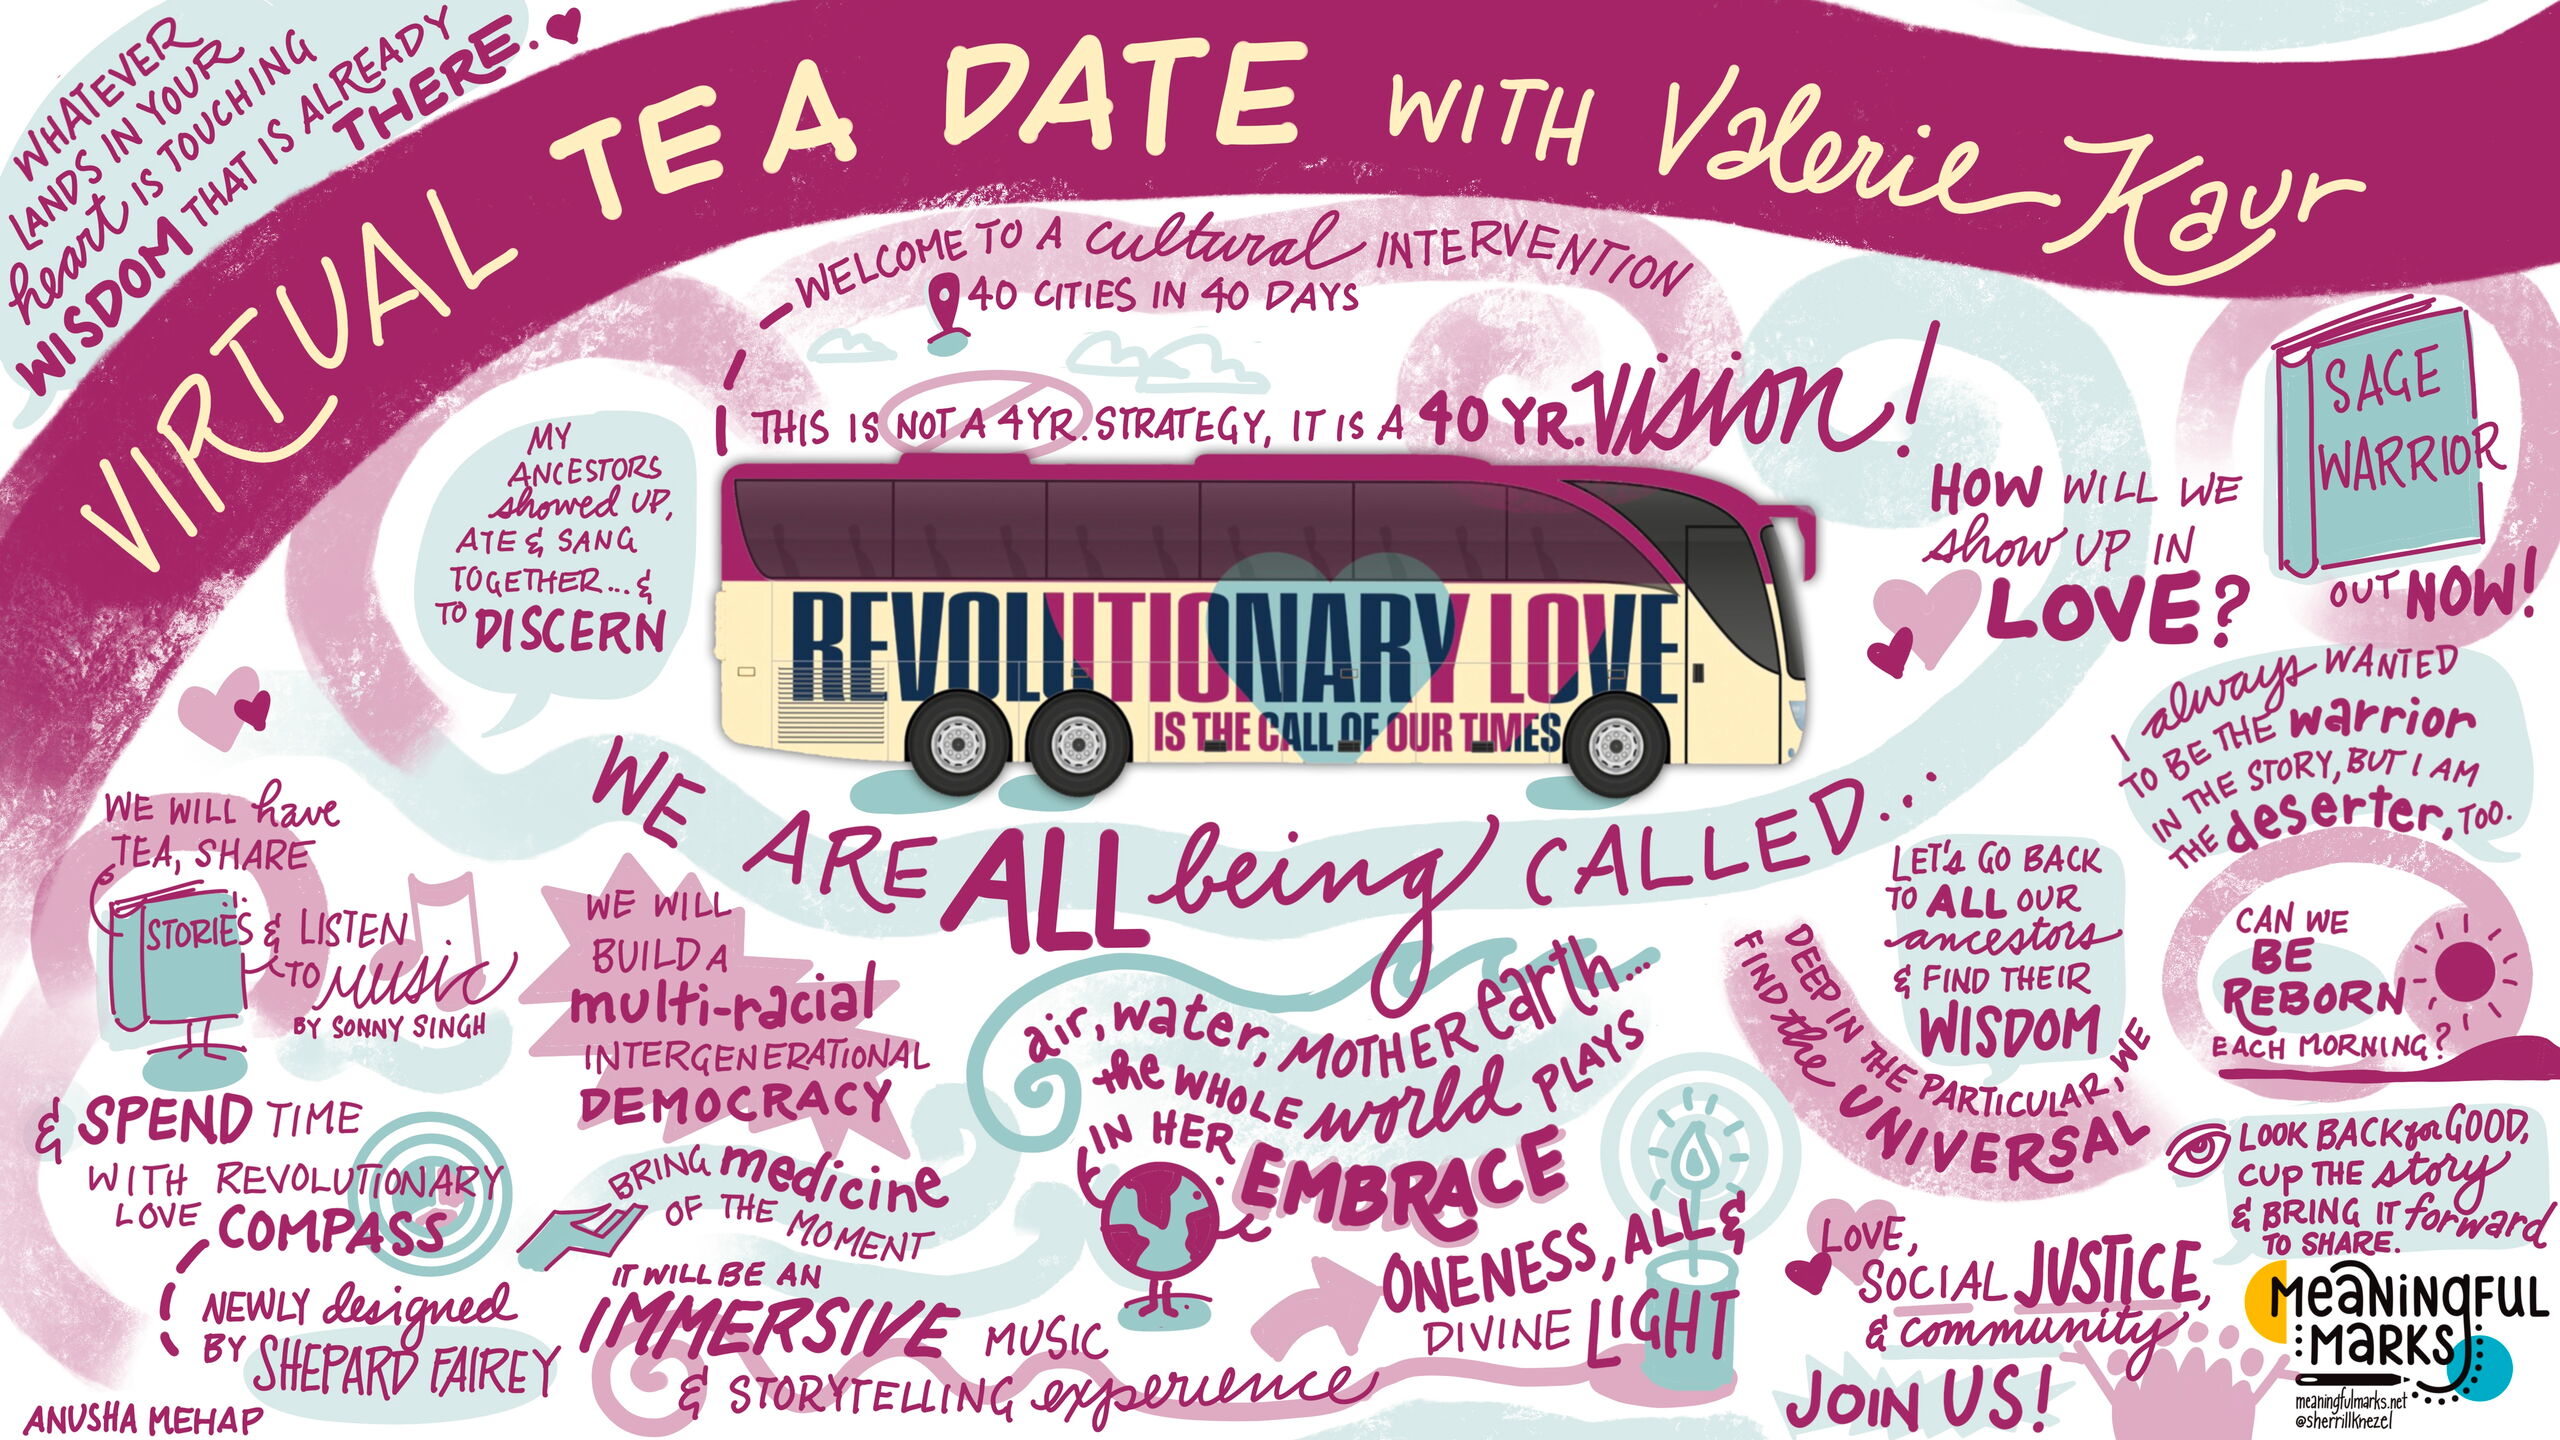 WHATEVER
LANDS IN YOUR
heart IS TOUCHING
WISDOM THAT IS ALREADY
THERE.
VIRTUAL TEA DATE WITH Valerie Kaur
WELCOME TO A cultural INTERVENTION
40 CITIES IN 40 DAYS
THIS IS NOT A 4YR. STRATEGY, IT IS A 40 YR. Vision!
MY
ANCESTORS
showed UP,
ATE & SANG
TOGETHER... &
TO DISCERN
REVOLUTIONARY LOVE
IS THE CALL OF OUR TIMES
HOW WILL WE
show UP IN
LOVE?
SAGE
WARRIOR
OUT NOW!
I always WANTED
TO BE THE warrior
IN THE STORY, BUT I AM
THE deserter, TOO.
WE ARE ALL being CALLED...
WE WILL have
TEA, SHARE
STORIES & LISTEN
TO music
BY SONNY SINGH
& SPEND TIME
WITH REVOLUTIONARY
LOVE COMPASS
NEWLY designed
BY SHEPARD FAIREY
ANUSHA MEHAP
WE WILL
BUILD A
multi-racial
INTERGENERATIONAL
DEMOCRACY
BRING medicine
OF THE MOMENT
IT WILL BE AN
IMMERSIVE MUSIC
& STORYTELLING experience
air, water, MOTHER earth...
the WHOLE world PLAYS
IN HER EMBRACE
ONENESS, ALL &
DIVINE LIGHT
LET'S GO BACK
TO ALL OUR
ancestors
& FIND THEIR
WISDOM
DEEP IN THE PARTICULAR, WE
FIND the UNIVERSAL
CAN WE
BE
REBORN
EACH MORNING?
LOOK BACK for GOOD,
CUP THE story
& BRING IT forward
TO SHARE.
LOVE,
SOCIAL JUSTICE,
& community
JOIN US!
MEANINGFUL
MARKS
meaningfulmarks.net
@sherrillknezel